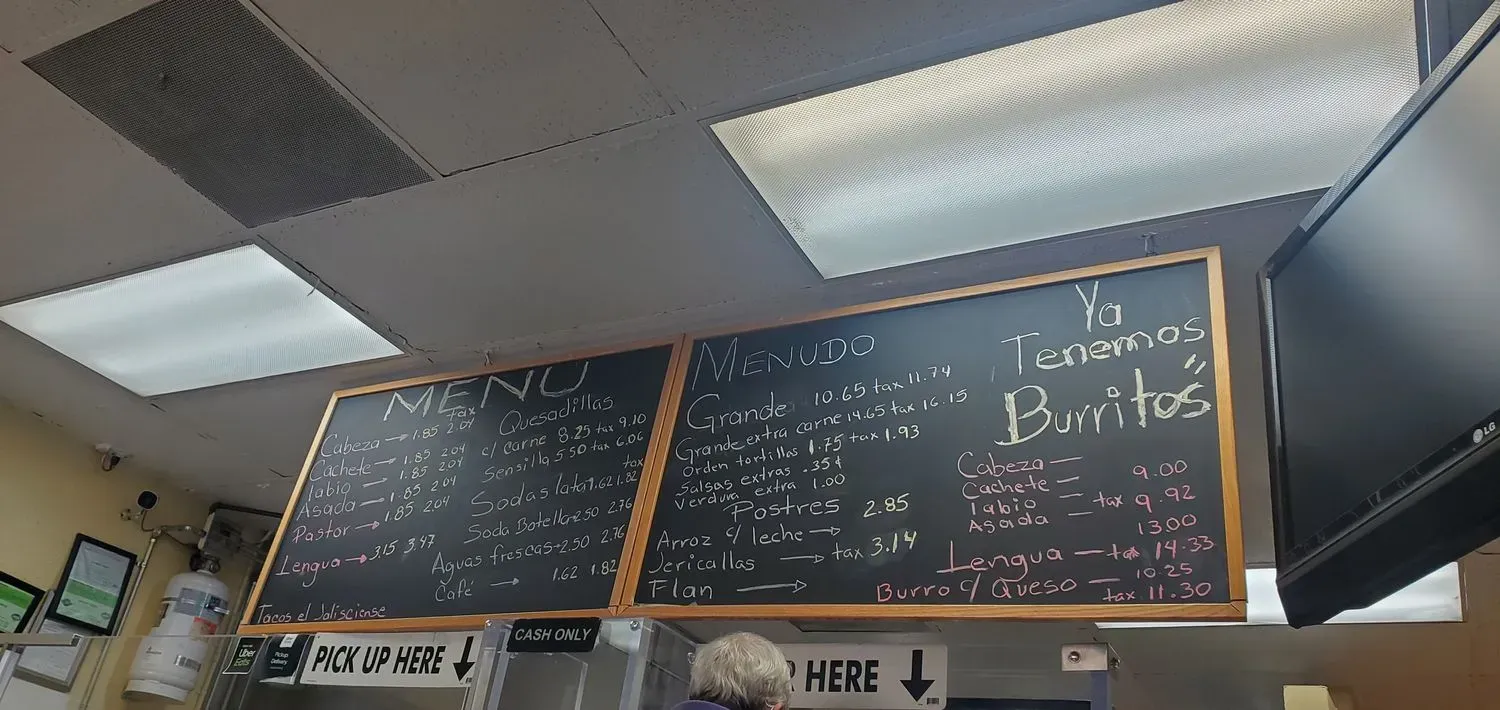 MENU
tax
Cabeza → 1.85 2.04
Cachete → 1.85 2.04
labio → 1.85 2.04
Asada → 1.85 2.04
Pastor → 1.85 2.04
Lengua → 3.15 3.47
Tacos el Jalisciense
Quesadillas
c/ carne 8.25 tax 9.10
Sensilla 5.50 tax 6.06
tax
Sodas lata 1.62 1.82
Soda Botella → 2.50 2.76
Aguas frescas → 2.50 2.76
Café → 1.62 1.82
MENUDO
Grande 10.65 tax 11.74
Grande extra carne 14.65 tax 16.15
Orden tortillas 1.75 tax 1.93
Salsas extras .35¢
verdura extra 1.00
Postres 2.85
Arroz c/ leche →
Jericallas → tax 3.14
Flan →
Ya
Tenemos
Burritos
Cabeza —
Cachete — 9.00
labio — tax 9.92
Asada —
13.00
Lengua — tax 14.33
Burro c/ Queso — 10.25
tax 11.30
Uber
Eats
PICK UP HERE ↓
CASH ONLY
R HERE ↓
LG